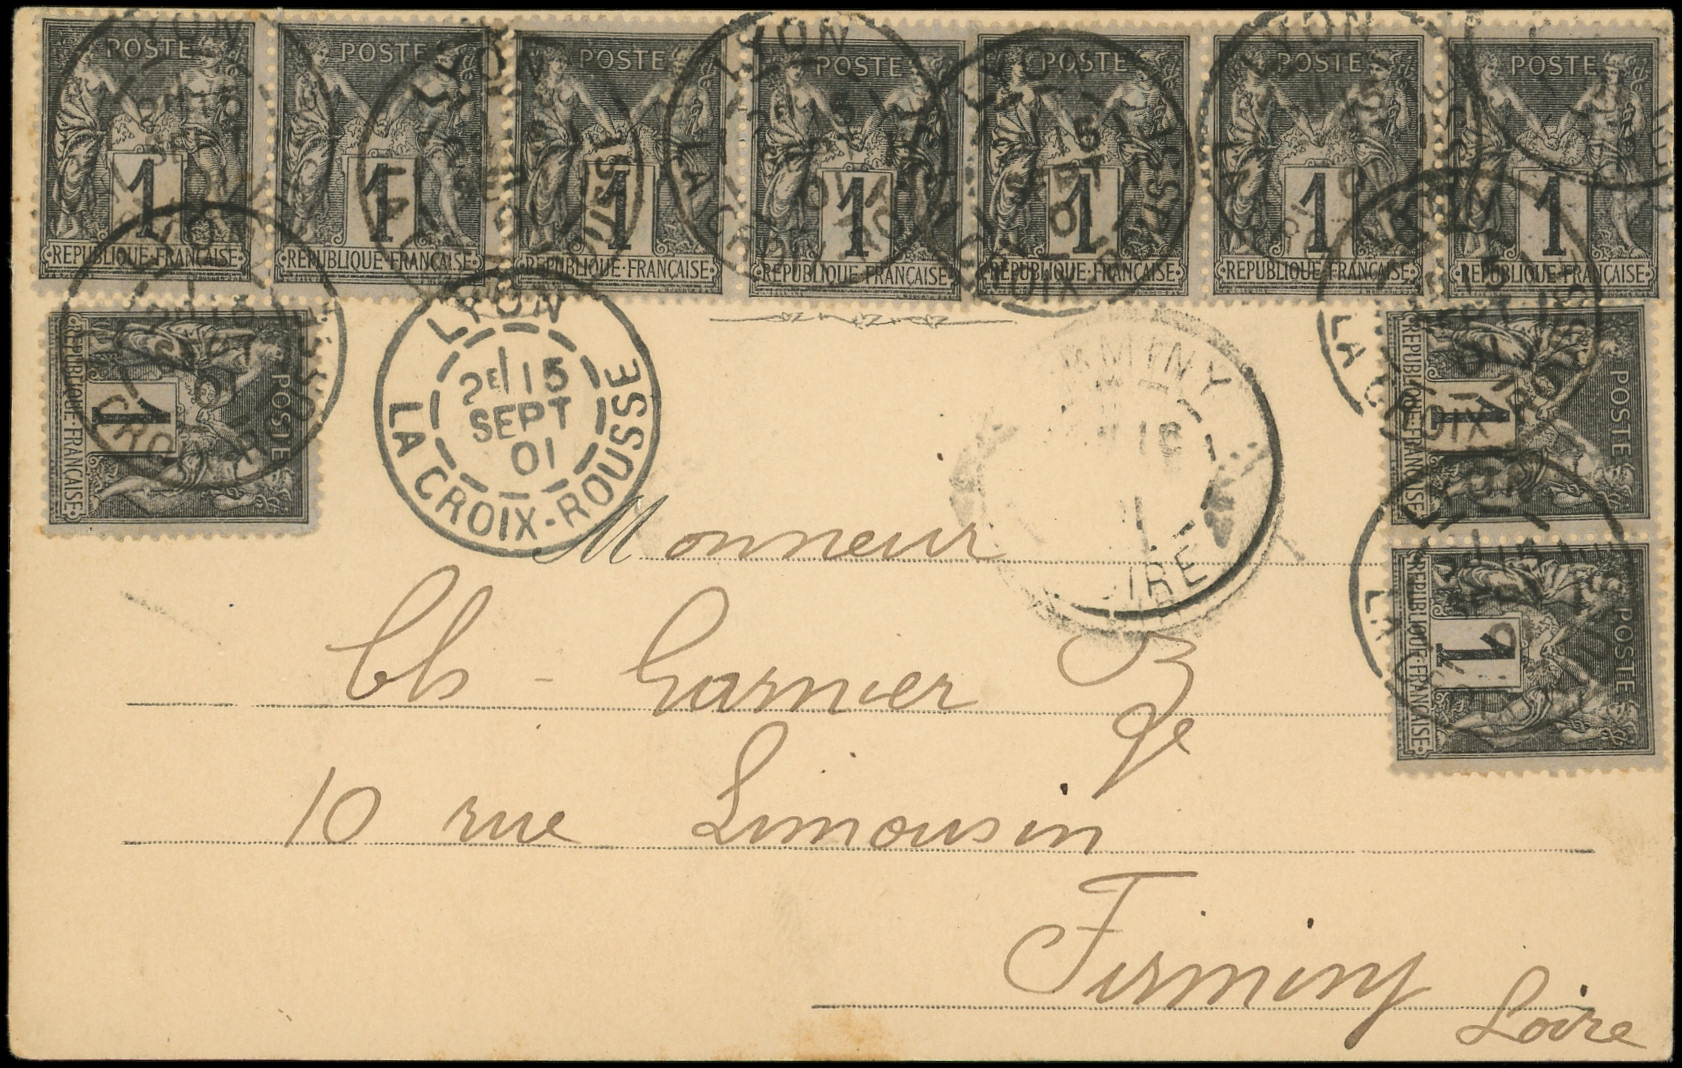 POSTE POSTE POSTE POSTE POSTE POSTE POSTE
1 1 1 1 1 1 1
REPUBLIQUE·FRANÇAISE REPUBLIQUE·FRANÇAISE REPUBLIQUE·FRANÇAISE REPUBLIQUE·FRANÇAISE REPUBLIQUE·FRANÇAISE REPUBLIQUE·FRANÇAISE REPUBLIQUE·FRANÇAISE
POSTE
1
REPUBLIQUE·FRANÇAISE
LYON
2E 15
SEPT
01
LA CROIX-ROUSSE
POSTE
1
REPUBLIQUE·FRANÇAISE
POSTE
1
REPUBLIQUE·FRANÇAISE
Monsieur
Ch - Garnier
10 rue Limousin
Firminy
Loire